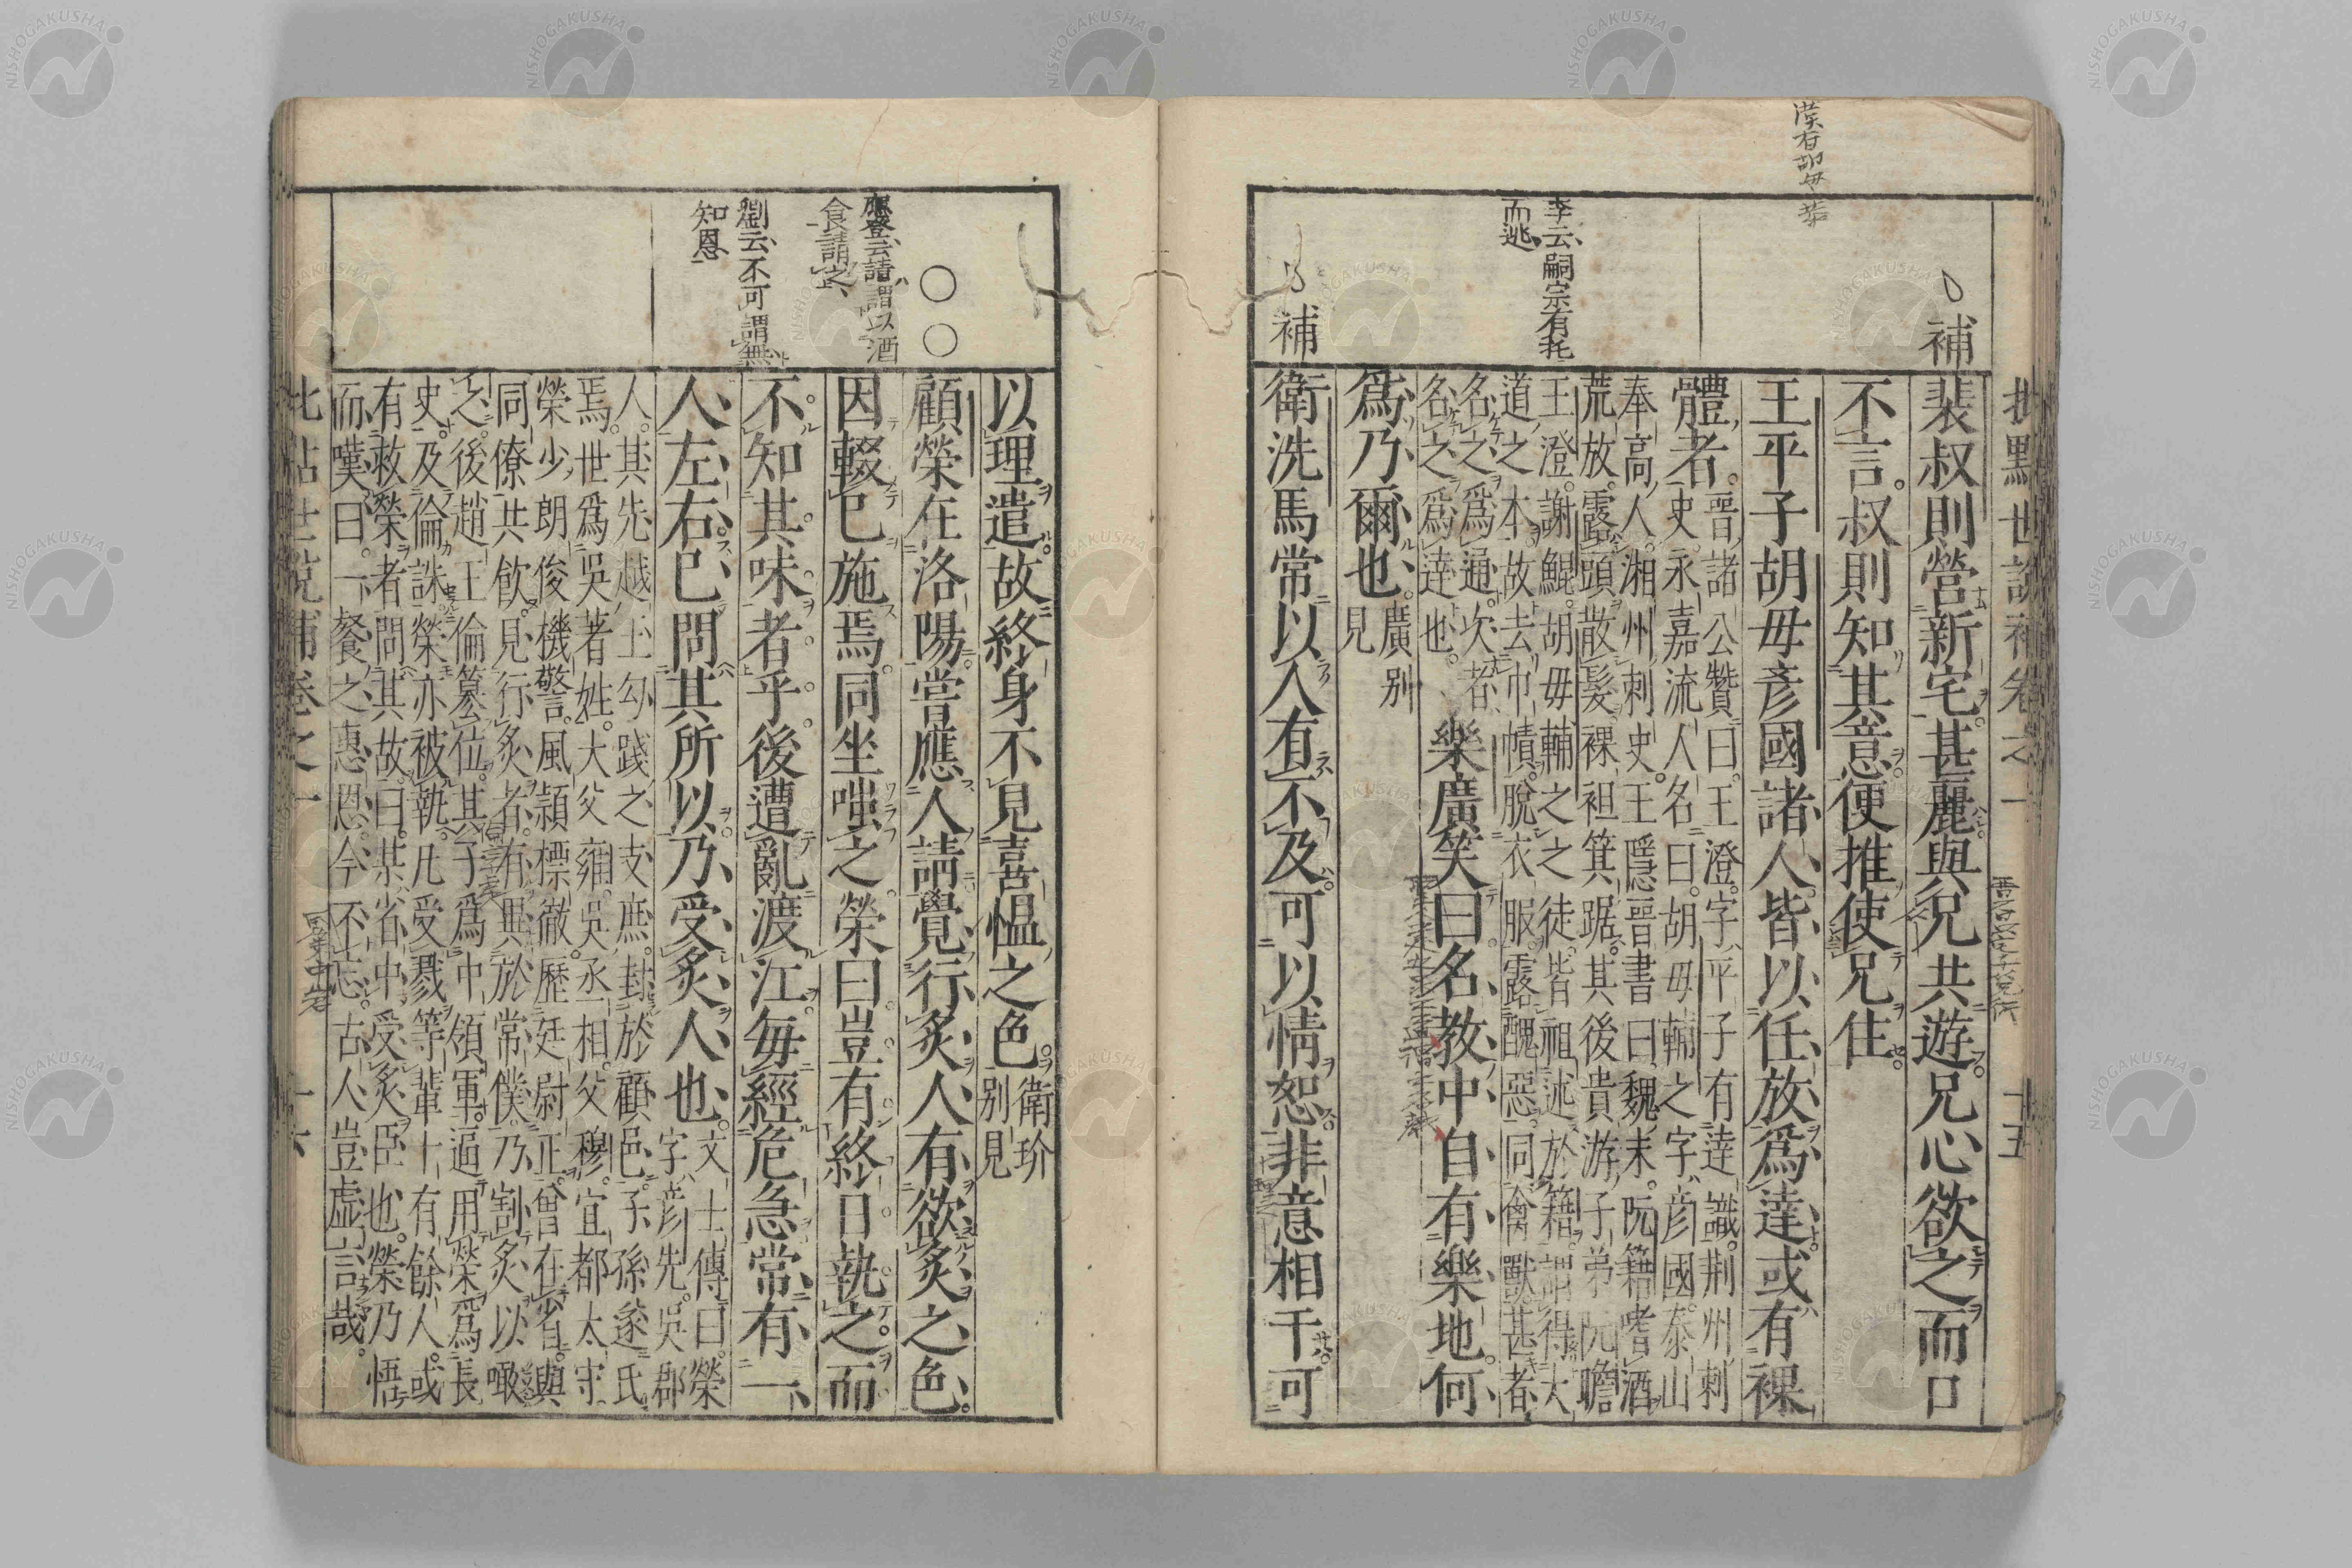 補
裴叔則營新宅甚麗與兄共遊兄心欲之而口
不言叔則知其意便推使兄住
王平子胡毋彥國諸人皆以任放爲達或有裸
體者
晉諸公贊曰王澄字平子有達識荊州刺
史永嘉流人名曰胡毋輔之字彥國泰山
奉高人湘州刺史王隱晉書曰魏末阮籍嗜酒
荒放露頭散髮裸袒箕踞其後貴游子弟阮瞻
王澄謝鯤胡毋輔之之徒皆祖述於籍謂得大
道之本故去巾幘脫衣服露醜惡同禽獸甚者
名之爲通次者
名之爲達也
樂廣笑曰名教中自有樂地何
爲乃爾也
廣別
見
李云嗣宗有托
而逃
補
衛洗馬常以人有不及可以情恕非意相干可
以理遣故終身不見喜慍之色
衛玠
別見
○○
顧榮在洛陽嘗應人請覺行炙人有欲炙之色
因輟已施焉同坐嗤之榮曰豈有終日執之而
不知其味者乎後遭亂渡江每經危急常有一
人左右已問其所以乃受炙人也
應登云請謂以酒
食請之
劉云不可謂無
知恩
文士傳曰榮
字彥先吳郡
人其先越王勾踐之支庶封於顧邑子孫遂氏
焉世爲吳著姓大父雍吳丞相父穆宜都太守
榮少朗俊機警風穎標徹歷廷尉正曾在省與
同僚共飲見行炙者有異於常僕乃割炙以噉
之後趙王倫篡位其子爲中領軍逼用榮爲長
史及倫誅榮亦被執凡受戮等輩十有餘人或
有救榮者問其故曰某省中受炙臣也榮乃悟
而嘆曰一餐之惠恩今不忘古人豈虛言哉